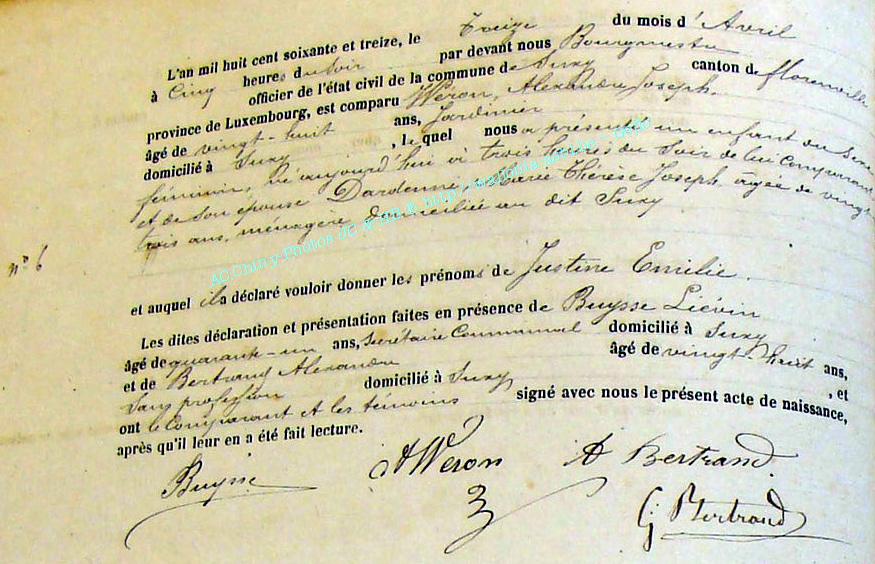 L'an mil huit cent soixante et treize, le Treize du mois d'Avril
à Cinq heures du Soir par devant nous Bourgmestre
officier de l'état civil de la commune de Suxy canton de florenville
province de Luxembourg, est comparu Wéron, Alexandre Joseph,
âgé de vingt-huit ans, Jardinier
domicilié à Suxy, lequel nous a présenté un enfant du Sexe
féminin, né aujourd'hui à trois heures du Soir de lui Comparant
et de Son épouse Dardenne, Marie Thérèse Joseph, âgée de vingt
trois ans, ménagère, domiciliée au dit Suxy
n° 6
AC Chiny - Photos
et auquel il a déclaré vouloir donner les prénoms de Justine Emilie.
Les dites déclaration et présentation faites en présence de Buysse Liévin
âgé de quarante-un ans, Secrétaire Communal domicilié à Suxy
et de Bertrand Alexandre âgé de vingt-huit ans,
Sans profession domicilié à Suxy, et
ont le Comparant et les témoins signé avec nous le présent acte de naissance,
après qu'il leur en a été fait lecture.
Buysse AWéron A Bertrand
Bertrand